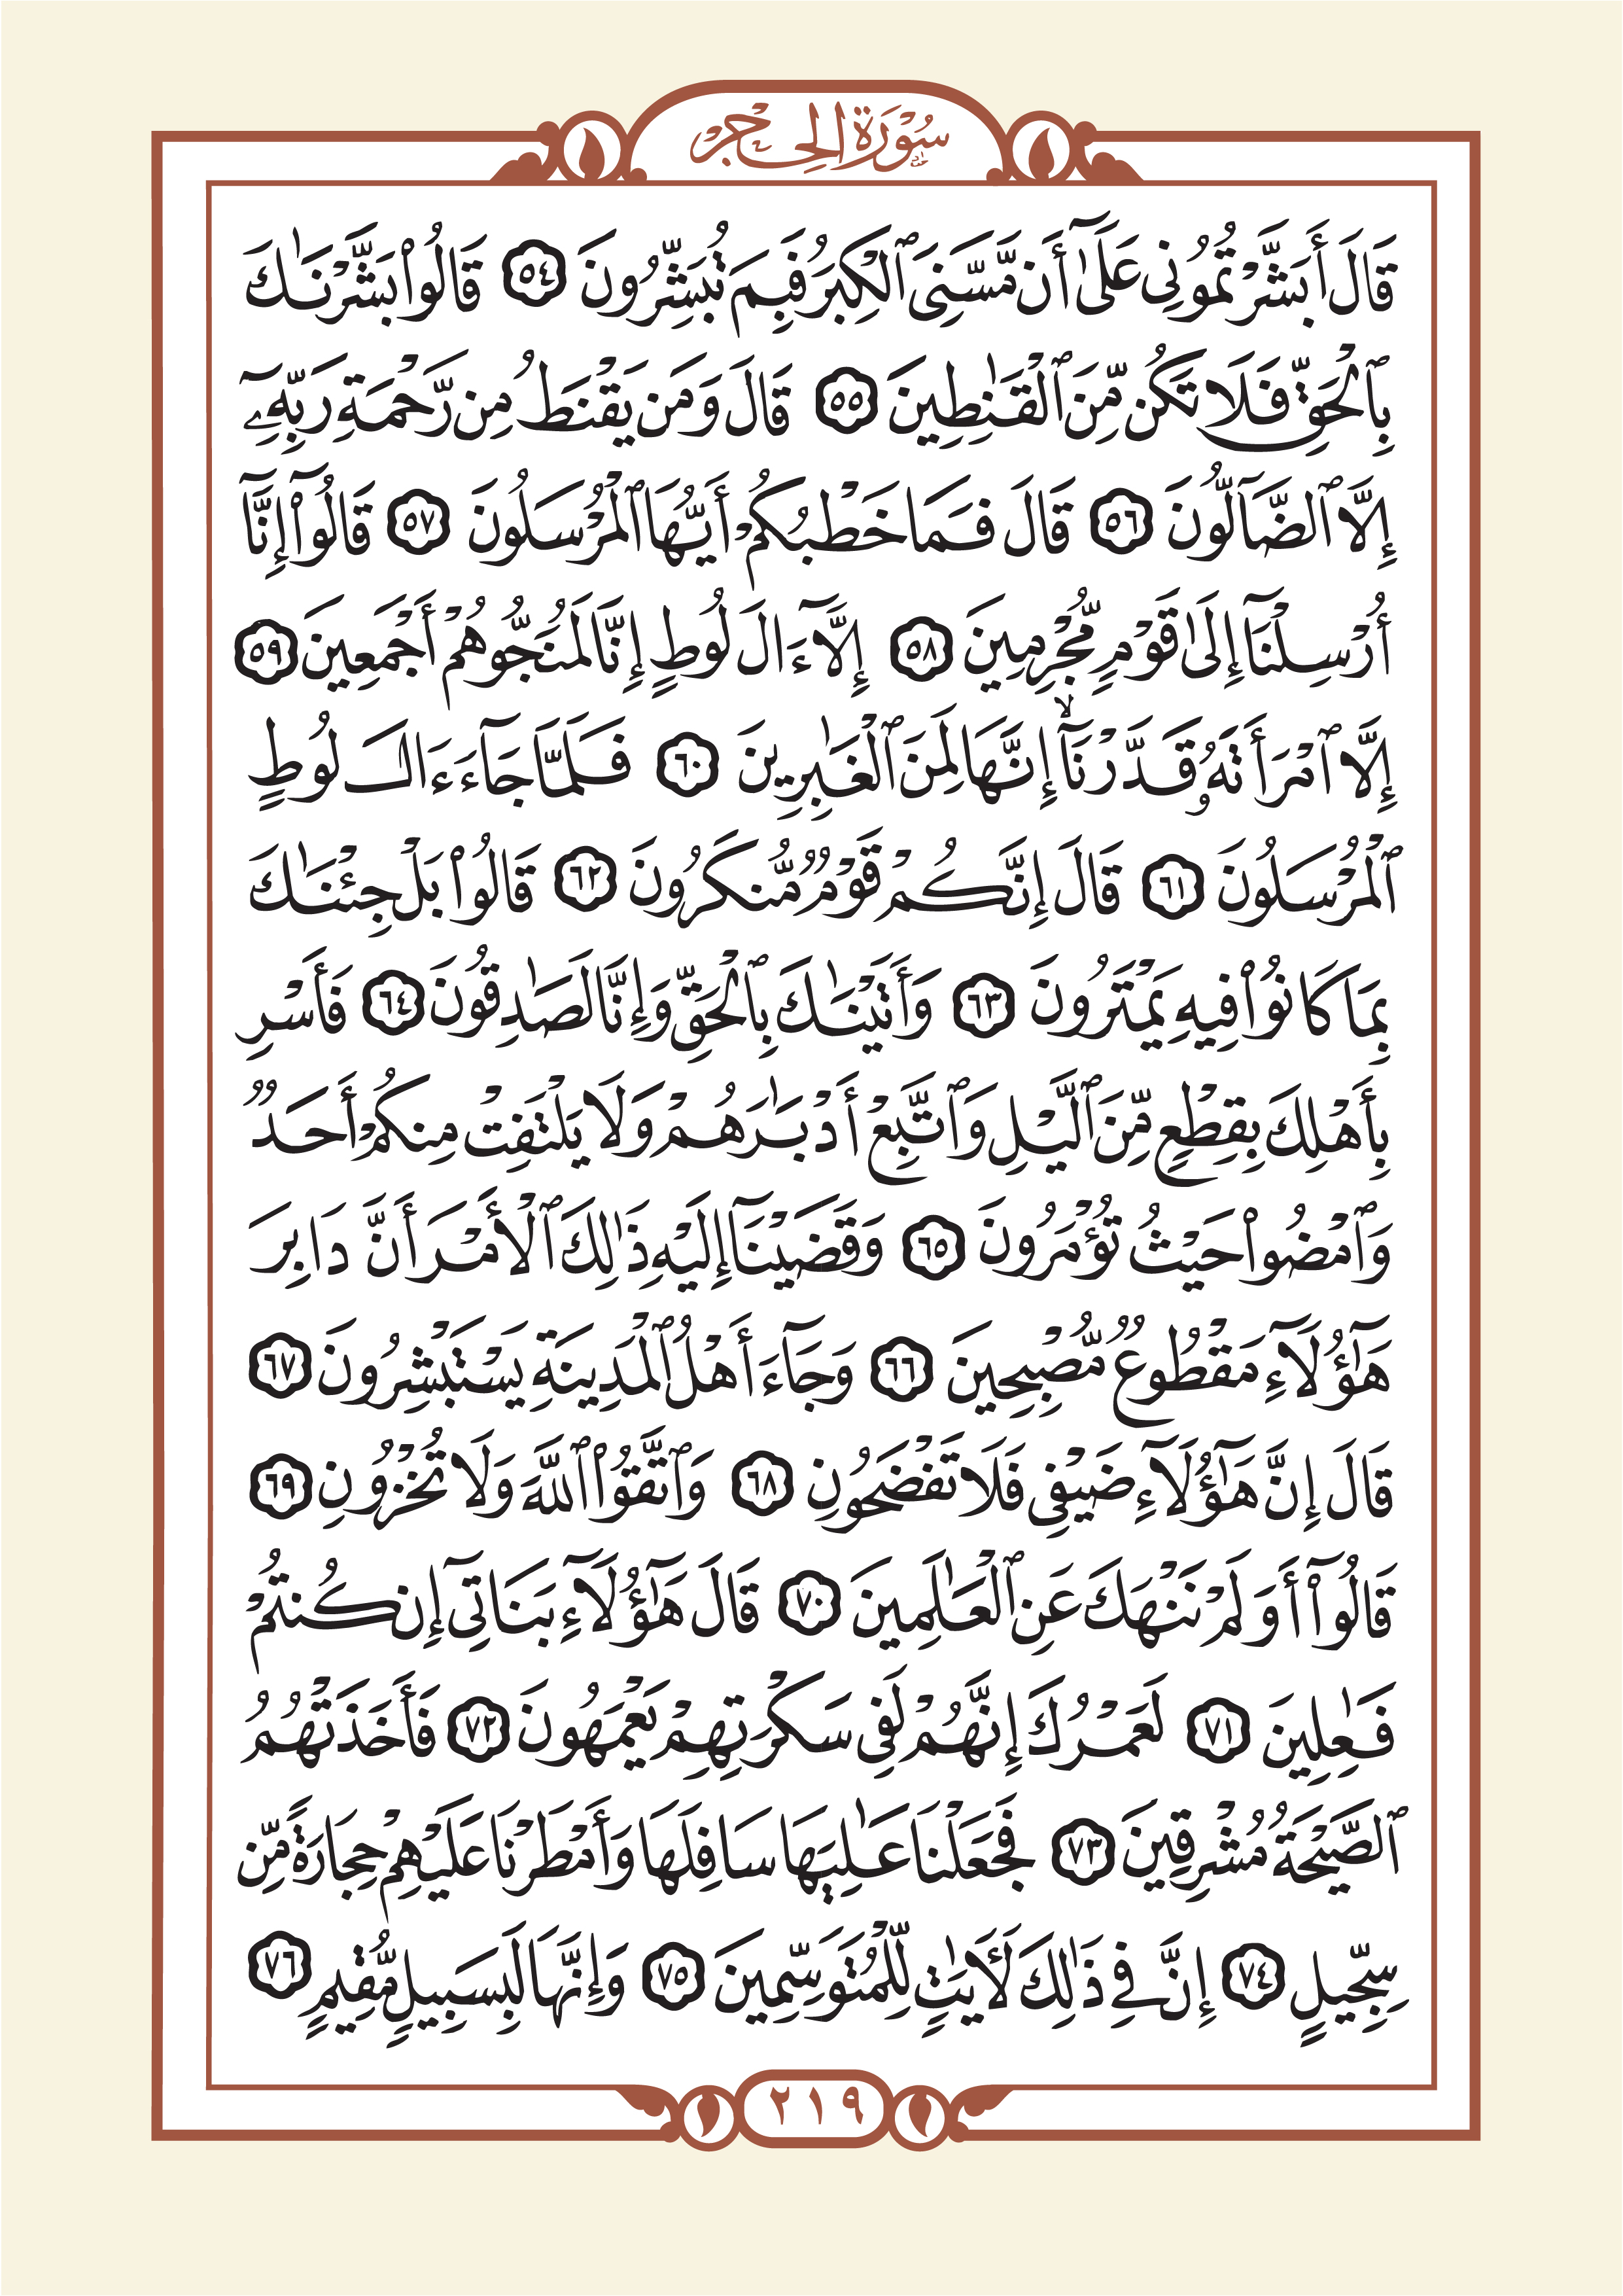 سُورَةُ الحِجر
قَالَ أَبَشَّرْتُمُونِى عَلَىٰٓ أَن مَّسَّنِىَ ٱلْكِبَرُ فَبِمَ تُبَشِّرُونَ ٥٤ قَالُوا۟ بَشَّرْنَـٰكَ
بِٱلْحَقِّ فَلَا تَكُن مِّنَ ٱلْقَـٰنِطِينَ ٥٥ قَالَ وَمَن يَقْنَطُ مِن رَّحْمَةِ رَبِّهِۦٓ
إِلَّا ٱلضَّآلُّونَ ٥٦ قَالَ فَمَا خَطْبُكُمْ أَيُّهَا ٱلْمُرْسَلُونَ ٥٧ قَالُوٓا۟ إِنَّآ
أُرْسِلْنَآ إِلَىٰ قَوْمٍ مُّجْرِمِينَ ٥٨ إِلَّآ ءَالَ لُوطٍ إِنَّا لَمُنَجُّوهُمْ أَجْمَعِينَ ٥٩
إِلَّا ٱمْرَأَتَهُۥ قَدَّرْنَآ ۙ إِنَّهَا لَمِنَ ٱلْغَـٰبِرِينَ ٦٠ فَلَمَّا جَآءَ ءَالَ لُوطٍ
ٱلْمُرْسَلُونَ ٦١ قَالَ إِنَّكُمْ قَوْمٌ مُّنكَرُونَ ٦٢ قَالُوا۟ بَلْ جِئْنَـٰكَ
بِمَا كَانُوا۟ فِيهِ يَمْتَرُونَ ٦٣ وَأَتَيْنَـٰكَ بِٱلْحَقِّ وَإِنَّا لَصَـٰدِقُونَ ٦٤ فَأَسْرِ
بِأَهْلِكَ بِقِطْعٍ مِّنَ ٱلَّيْلِ وَٱتَّبِعْ أَدْبَـٰرَهُمْ وَلَا يَلْتَفِتْ مِنكُمْ أَحَدٌ
وَٱمْضُوا۟ حَيْثُ تُؤْمَرُونَ ٦٥ وَقَضَيْنَآ إِلَيْهِ ذَٰلِكَ ٱلْأَمْرَ أَنَّ دَابِرَ
هَـٰٓؤُلَآءِ مَقْطُوعٌ مُّصْبِحِينَ ٦٦ وَجَآءَ أَهْلُ ٱلْمَدِينَةِ يَسْتَبْشِرُونَ ٦٧
قَالَ إِنَّ هَـٰٓؤُلَآءِ ضَيْفِى فَلَا تَفْضَحُونِ ٦٨ وَٱتَّقُوا۟ ٱللَّهَ وَلَا تُخْزُونِ ٦٩
قَالُوٓا۟ أَوَلَمْ نَنْهَكَ عَنِ ٱلْعَـٰلَمِينَ ٧٠ قَالَ هَـٰٓؤُلَآءِ بَنَاتِىٓ إِن كُنتُمْ
فَـٰعِلِينَ ٧١ لَعَمْرُكَ إِنَّهُمْ لَفِى سَكْرَتِهِمْ يَعْمَهُونَ ٧٢ فَأَخَذَتْهُمُ
ٱلصَّيْحَةُ مُشْرِقِينَ ٧٣ فَجَعَلْنَا عَـٰلِيَهَا سَافِلَهَا وَأَمْطَرْنَا عَلَيْهِمْ حِجَارَةً مِّن
سِجِّيلٍ ٧٤ إِنَّ فِى ذَٰلِكَ لَـَٔايَـٰتٍ لِّلْمُتَوَسِّمِينَ ٧٥ وَإِنَّهَا لَبِسَبِيلٍ مُّقِيمٍ ٧٦
٢١٩